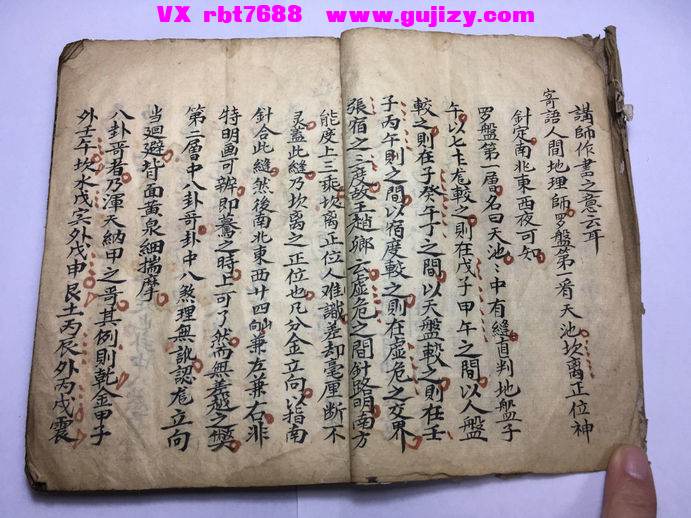 VX rbt7688 www.gujizy.com
講師作書之意云耳
寄語人間地理師羅盤第一看天池坎離正位神
針定南北東西夜可知
罗盤第一層名曰天池:中有縫直判地盤子
午以七十危較之則在戊子甲午之間以人盤
較之則在子癸午丁之間以天盤較之則在壬
子丙午則之間以宿度較之則在虛危之交界
張宿之三度故王趙鄉云虛危之間針路明南方
能度上三乘坎离正位人难識差却毫厘断不
灵蓋此縫乃坎离之正位也凡分金立向以指南
針合此縫然後南北東西廿四山向兼左兼右非
特明画可辨即暮之時上可了然而無差越之弊
第二層中八卦哥卦中八煞理無訛認危立向
当廻避背面黄泉細揣摩
八卦哥者乃渾天納甲之哥其例則乾金甲子
外壬午坎水戊寅外戊申艮土丙辰外丙戌震